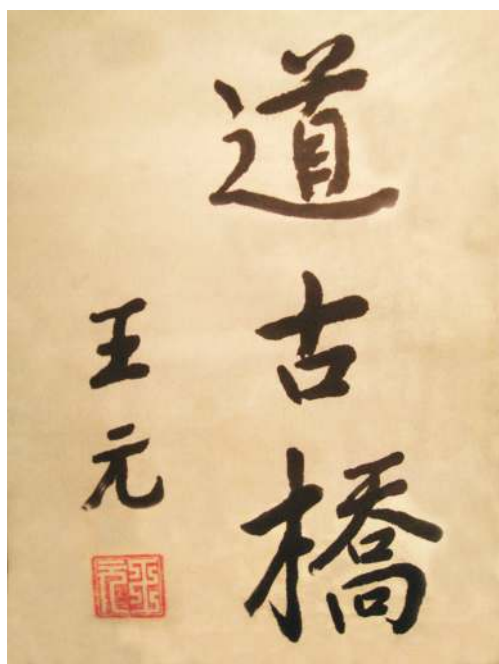 道古橋
王元
王元